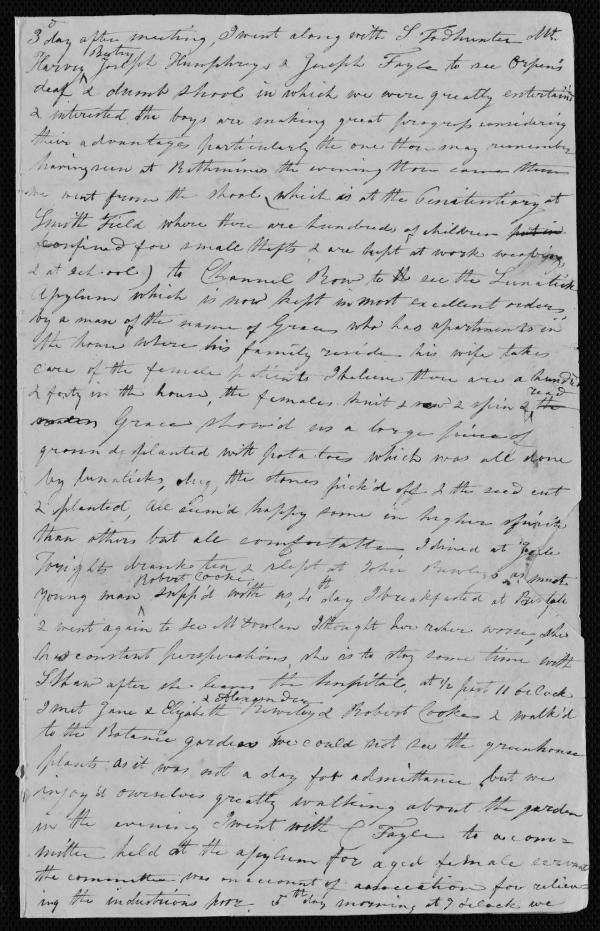 3d day after meeting, I went along with S Todhunter Mr.
Harvey Betsy Joseph Humphreys & Joseph Fayle to see Orpen's
deaf & dumb shool in which we were greatly entertaind
& interested the boys are making great progress considering
their advantages particularly the one thou may remember
having seen at Rathmines the evening thou came there
we went from the shool, (which is at the Penitentiary at
Smith Field where there are hundreds of children put in
confined for small thefts & are kept at work weaving,
& at school) to Channel Row to see the Lunatick
Asylum which is now kept in most excellent order,
by a man of the name of Grace who has apartments in
the house where his family reside his wife takes
care of the female patients I believe there are a hundred
& forty in the house, the females knit & sew & spin & read the
Grace show'd us a large piece of
ground planted with potatoes which was all done
by lunaticks, dug, the stones pick'd off & the seed cut
& planted, all seem'd happy some in higher spirits
than others but all comfortable, I dined at
Forights drank tea & slept at John Bewleys, a most
young man Robert Cooke supp'd with us, 4th day I breakfasted at
& went again to see M Dowlan I thought her rather worse, she
has constant perspirations, she is to stay some time with
S Shaw after she leaves the hospital, at ½ past 11 o'clock
I met Jane & Elizabeth & Alexander Bewley & Robert Cooke & walk'd
to the Botanic garden we could not see the greenhouse
plants as it was not a day for admittance but we
enjoy'd ourselves greatly walking about the garden
in the evening I went with J Fayle to a com=
mittee held at the asylum for aged female servants
the committee was on account of association for reliev
ing the industrious poor. 5th day morning at 7 o'clock we